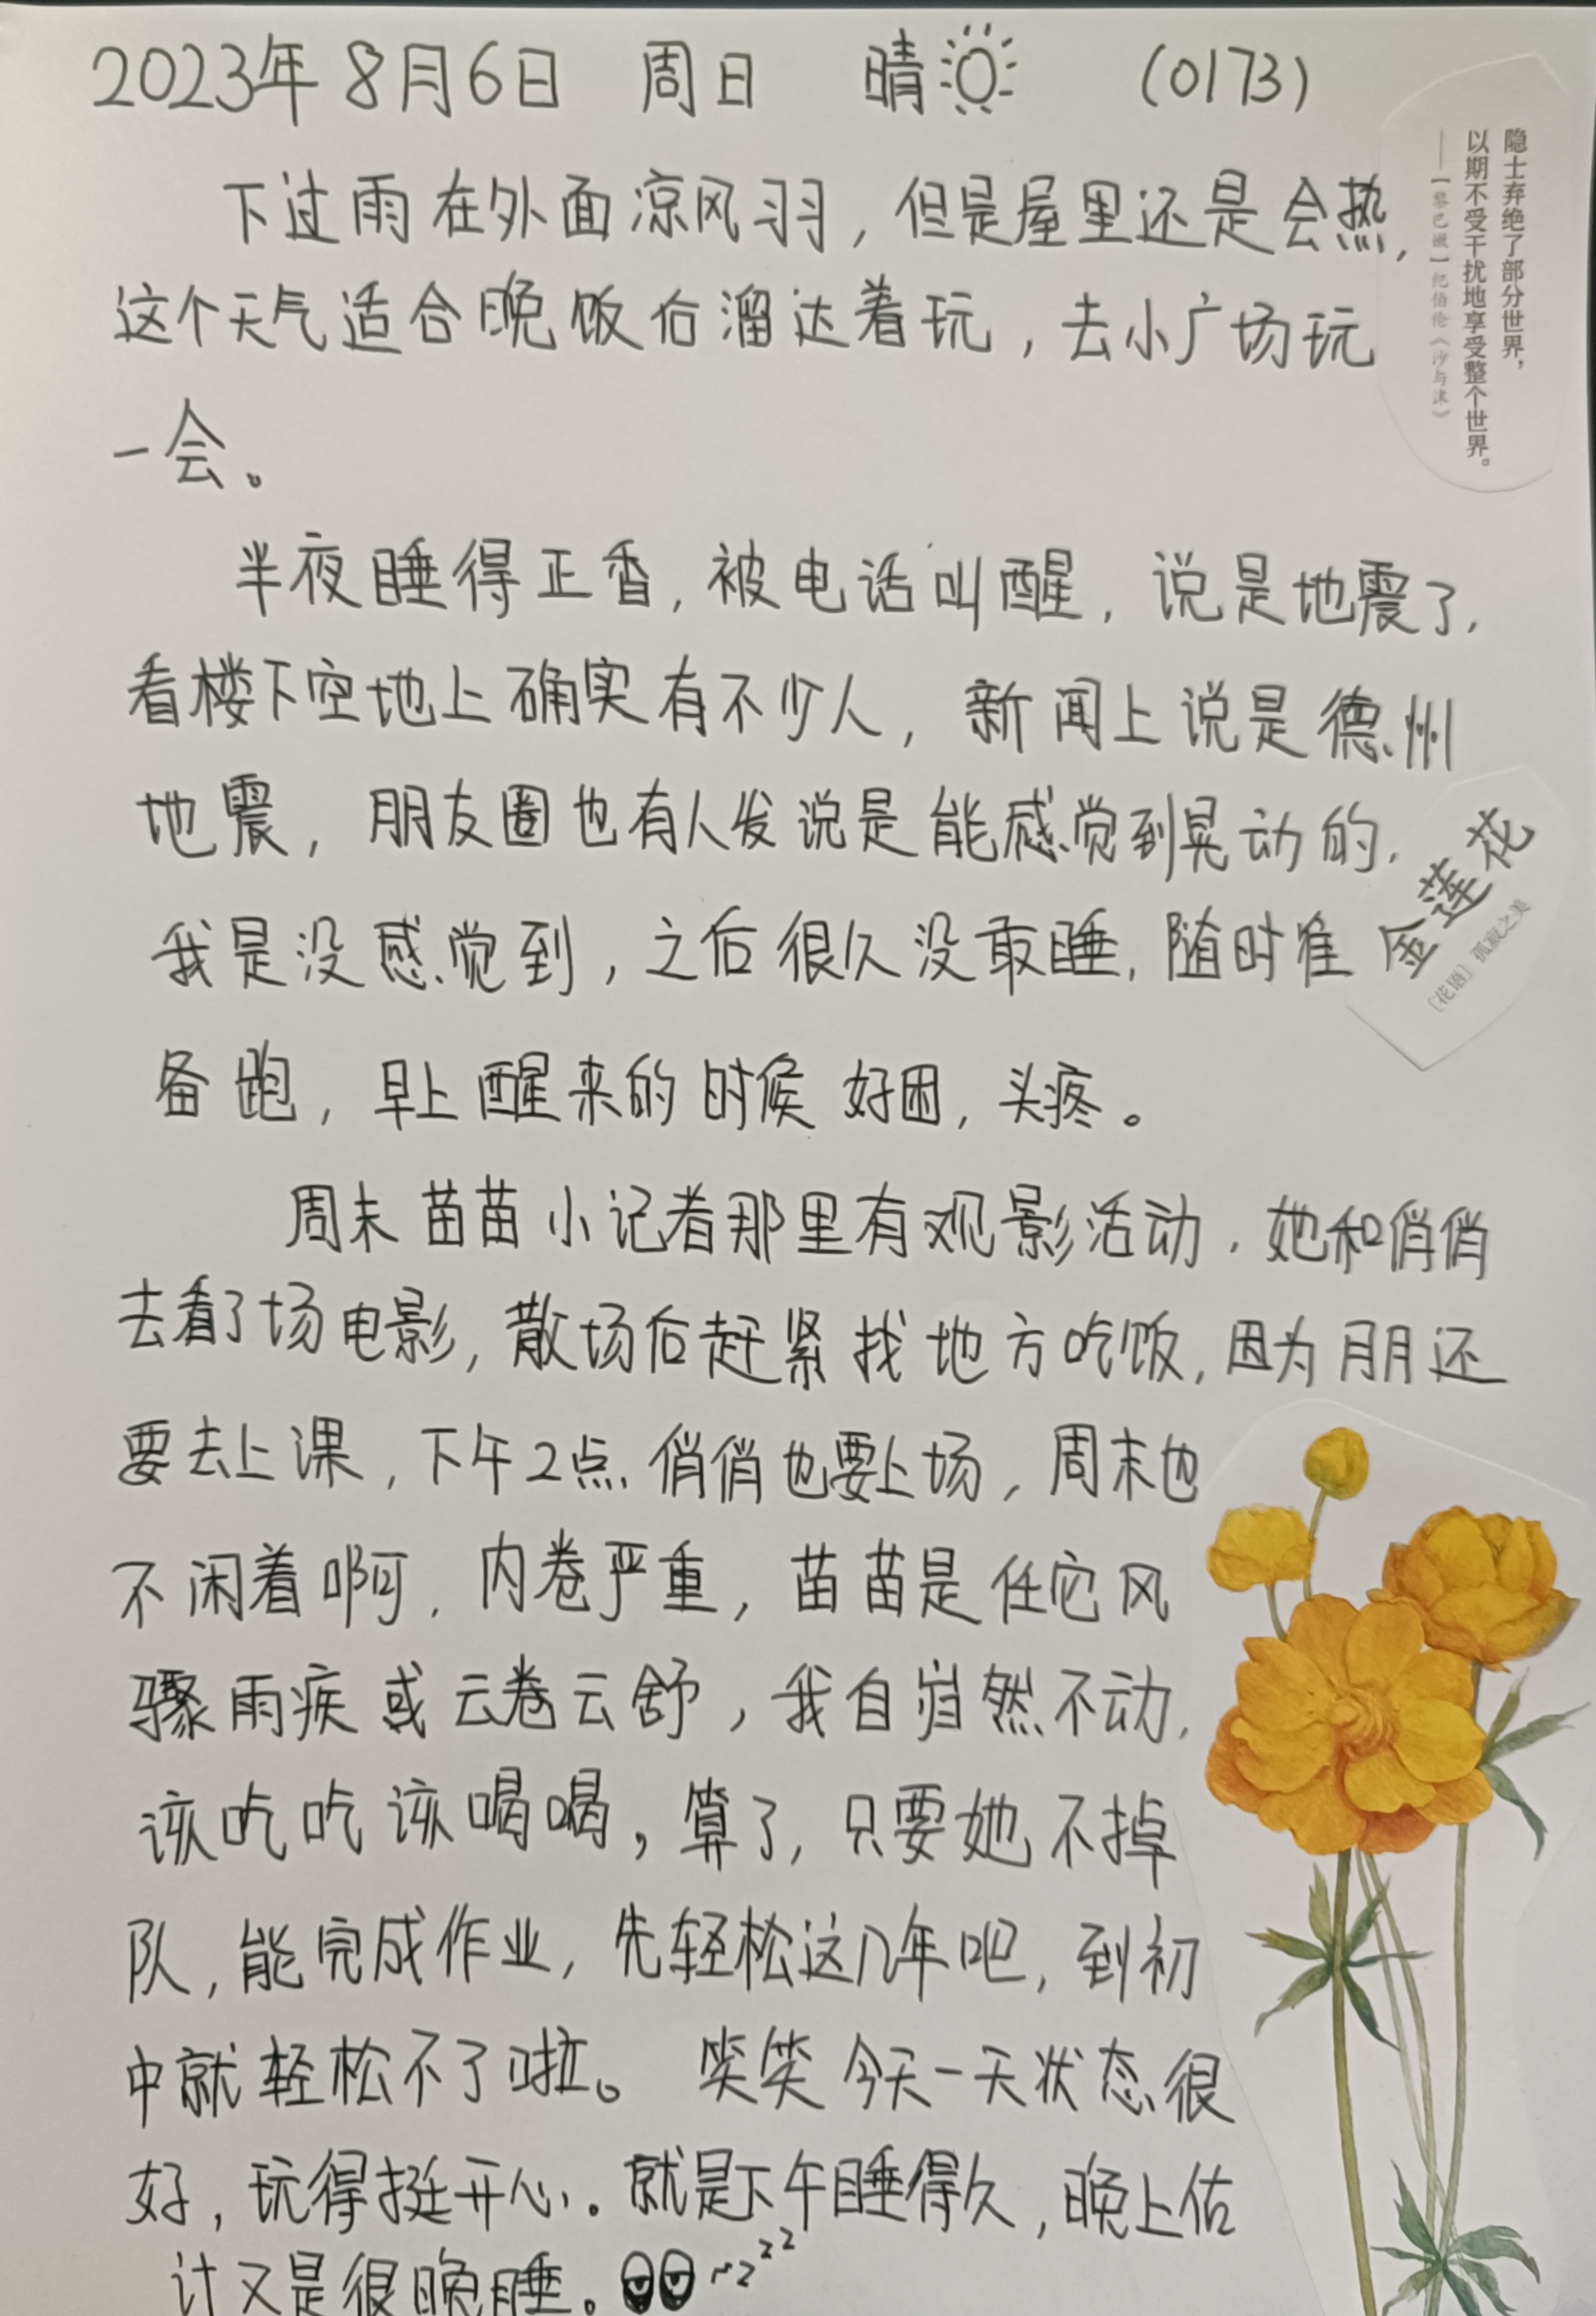 2023年8月6日 周日 晴 (0173)
下过雨在外面凉风习习，但是屋里还是会热，
这个天气适合晚饭后溜达着玩，去小广场玩
一会。
半夜睡得正香，被电话叫醒，说是地震了，
看楼下空地上确实有不少人，新闻上说是德州
地震，朋友圈也有人发说是能感觉到晃动的，
我是没感觉到，之后很久没敢睡，随时准
备跑，早上醒来的时候好困，头疼。
周末苗苗小记者那里有观影活动，她和俏俏
去看了场电影，散场后赶紧找地方吃饭，因为朋还
要去上课，下午2点俏俏也要上场，周末也
不闲着啊，内卷严重，苗苗是任它风
骤雨疾或云卷云舒，我自岿然不动，
该吃吃该喝喝，算了，只要她不掉
队，能完成作业，先轻松这几年吧，到初
中就轻松不了啦。 笑笑今天一天状态很
好，玩得挺开心。就是下午睡得久，晚上估
计又是很晚睡。 ~zzz
隐士弃绝了部分世界，
以期不受干扰地享受整个世界。
——【黎巴嫩】纪伯伦《沙与沫》
金莲花
[花语] 孤寂之美